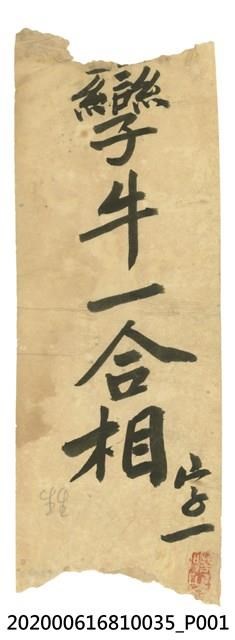 孿牛一合相
字一
202000616810035_P001